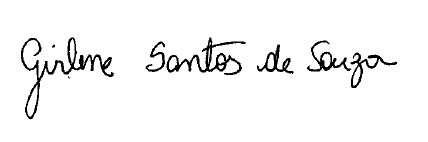 Girlene Santos de Souza